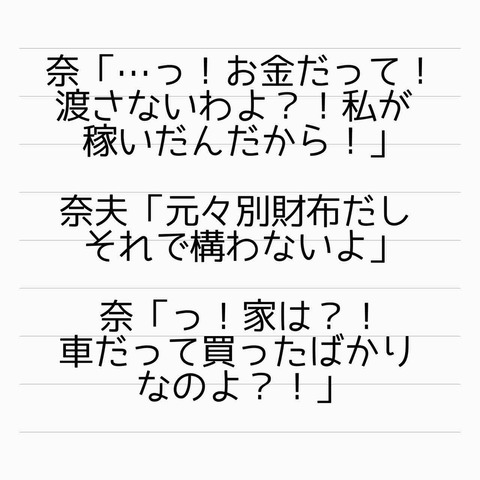 奈「…っ！お金だって！
渡さないわよ？！私が
稼いだんだから！」
奈夫「元々別財布だし
それで構わないよ」
奈「っ！家は？！
車だって買ったばかり
なのよ？！」